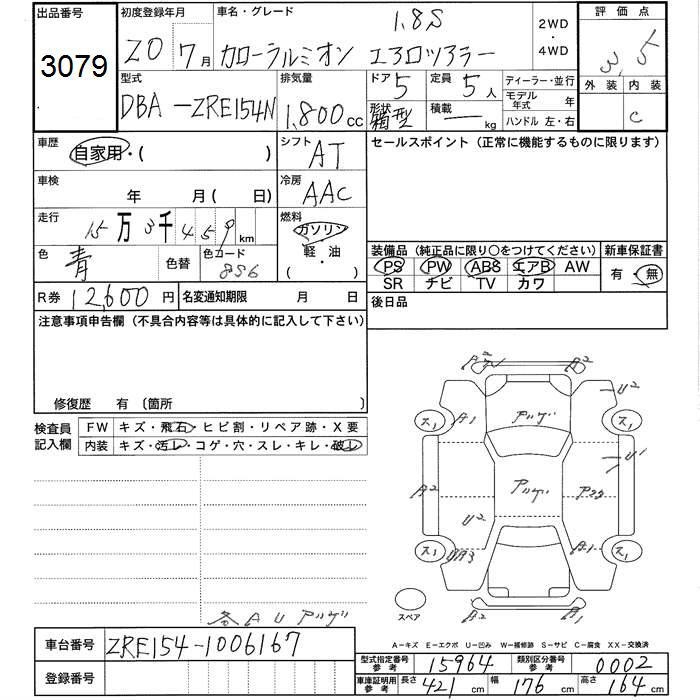 出品番号
3079
初度登録年月
20 7月
車名・グレード
1.8S
カローラルミオン エアロツアラー
2WD
・
4WD
評価点
3.5
外装 内装
C
型式
DBA-ZRE154N
排気量
1,800cc
ドア 5
形状 箱型
定員 5人
積載 ― kg
ディーラー・並行
モデル年式 年
ハンドル 左・右
車歴
自家用・( )
シフト
AT
セールスポイント(正常に機能するものに限ります)
車検
年 月(日)
冷房
AAC
走行
15万3千459km
燃料
ガソリン
軽・油
( )
色
青
色替
色コード
8S6
装備品(純正品に限り○をつけてください)
PS PW ABS エアB AW
SR ナビ TV カワ
新車保証書
有・無
R券 12,600円
名変通知期限 月 日
後日品
注意事項申告欄(不具合内容等は具体的に記入して下さい)
修復歴 有〔箇所 〕
検査員記入欄
FW キズ・飛石・ヒビ割・リペア跡・X要
内装 キズ・汚レ・コゲ・穴・スレ・キレ・破レ
A2
U2
A1
スレ1
アハゲ
U1
A2
アハゲ
U2
スレ1
UA3
A1
スレ1
A2
A1
スペア
各AUアハゲ
車台番号
ZRE154-1006167
登録番号
A-キズ E-エクボ U-凹み W-補修跡 S-サビ C-腐食 XX-交換済
型式指定番号参考 15964
類別区分番号参考 0002
車庫証明用参考 長さ 421cm 幅 176cm 高さ 164cm